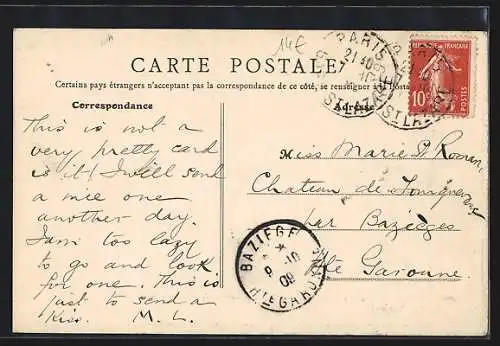 14€
CARTE POSTALE
Certains pays étrangers n'acceptent pas la correspondance de ce côté, se renseigner à la
Correspondance
Adresse
This is not a
very pretty card
is it! I will send
a nice one
another day.
I am too lazy
to go and look
for one. This is
just to send a
kiss. M. L.
Miss Marie
Chateau de
par Baziéges
Hte Garonne.
PARIS
ST LAZARE
REPUBLIQUE FRANÇAISE
10
POSTES
BAZIEGE
9 -10
09
HTE GARONNE